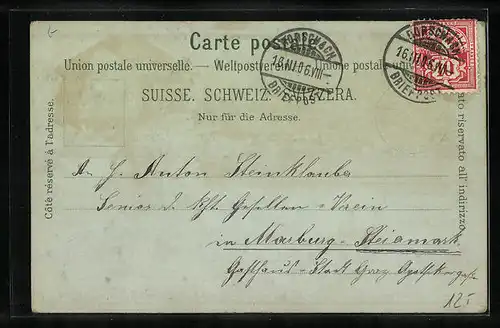 Carte postale.
Union postale universelle. — Weltpostverein. — Unione postale
SUISSE. SCHWEIZ. SVIZZERA.
Nur für die Adresse.
Côté réservé à l'adresse.
riservato all' indirizzo.
RORSCHACH
16.III.06.VIII
BRIEFPOST
RORSCHACH
16.III.06.VIII
BRIEFPOST
An H. Anton Steinklauber
Senior d. kth. Gesellen-Verein
in Marburg-Steiamark
Gasthaus-Stadt Graz
125